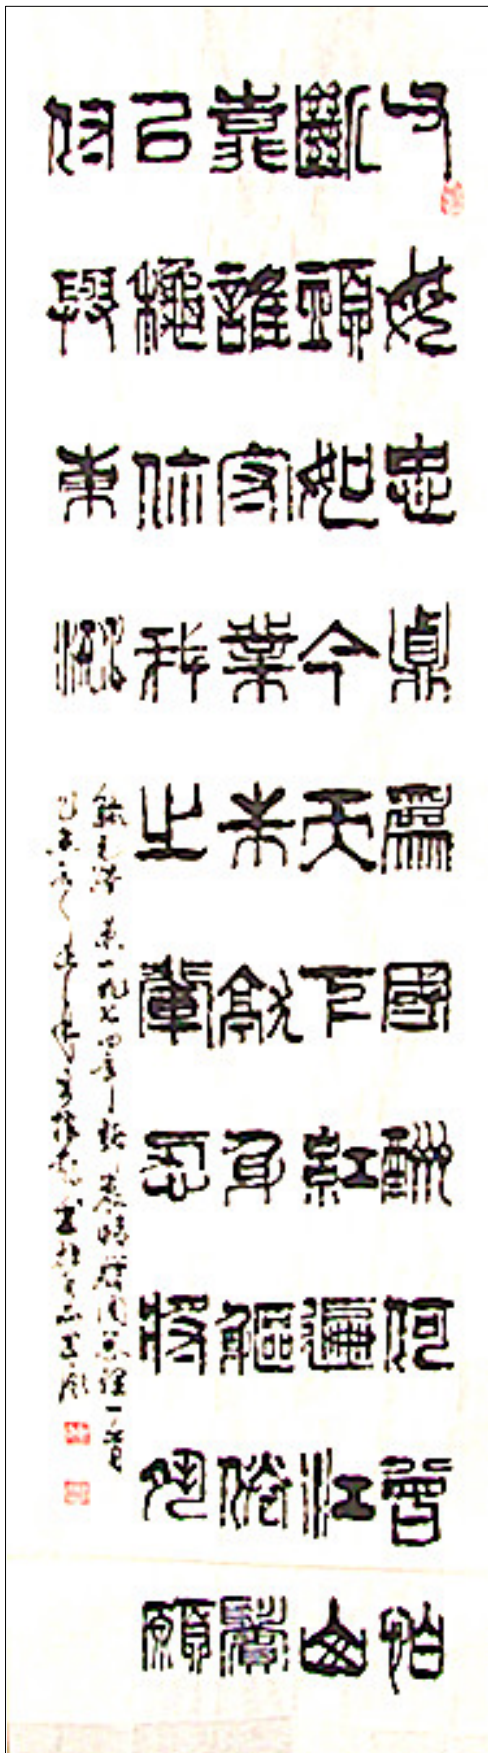 父母忠貞為國酬何曾怕
斷頭如今天下紅遍江山
靠誰守業未就身軀倦鬢
已秋你我之輩忍將夙願
付與東流
錄毛澤東一九七四年訴衷情贈周總理一首